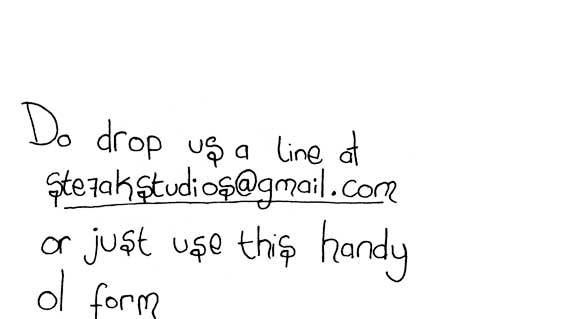 Do drop us a line at
ste7akstudios@gmail.com
or just use this handy
ol form